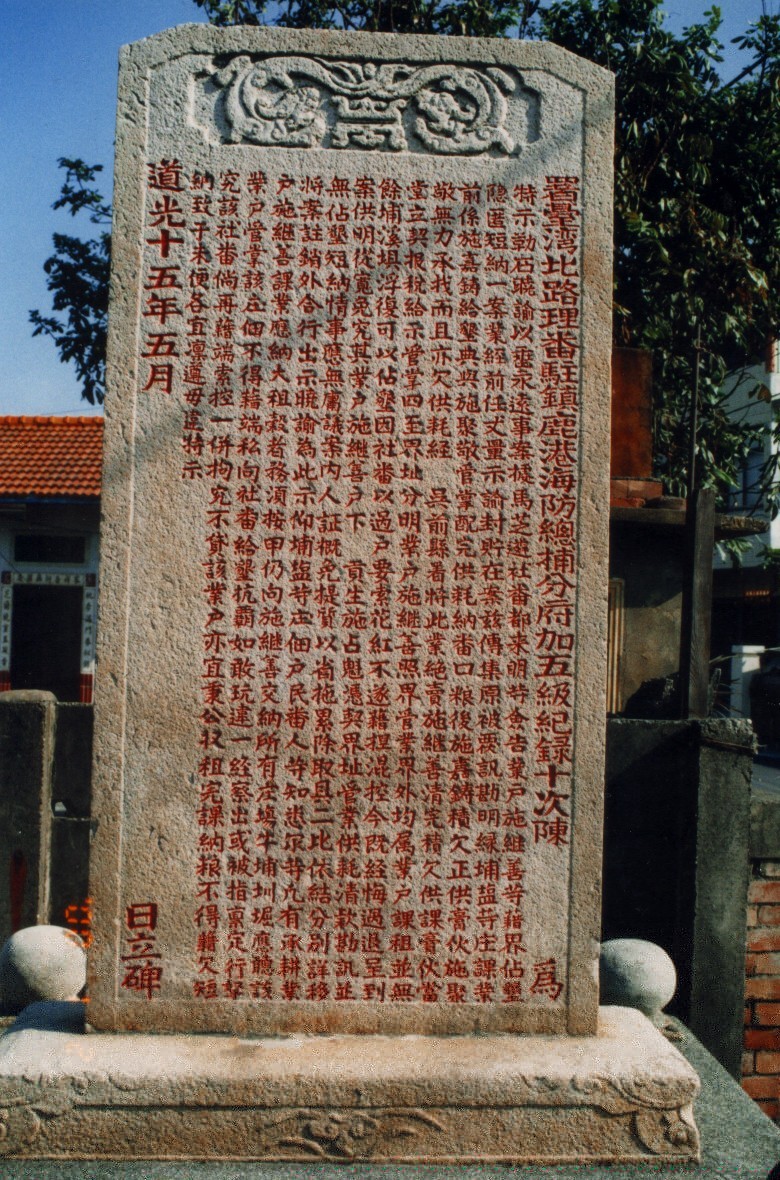 署臺灣北路理番駐鎮鹿港海防總捕分府加五級紀錄十次陳 為
特示勒石曉諭以垂永遠事案據馬芝遴社番都來明等僉告業戶施繼善等藉界佔墾
隱匿短納一案業經前任丈量示諭封貯在案茲傳集原被覆訊勘明綠埔鹽等庄課業
前係施嘉鑄給墾典與施聚敬管掌配完供耗納番口粮後施嘉鑄積欠正供膏伙施聚
敬無力承找而且亦欠供耗經 吳前縣署將此業絕賣施繼善清完積欠供課膏伙當
堂立契报稅給示管掌四至界址分明業戶施繼善照界管業界外均属業戶課租並無
餘埔溪埧浮復可以佔墾因社番以過戶要索花紅不遂藉捏混控今既經悔過退呈到
案供明從寬免究其業戶施継善戶下 貢生施占魁憑契界址管業供耗清款勘訊並
無佔墾短納情事應無庸議案内人証概免提質以省拖累除取具二比依結分别詳移
將案註銷外合行出示曉諭為此示仰埔塩等庄佃戶民番人等知悉尔等凢有承耕業
戶施継善課業應納大租穀者務須按甲仍向施継善交納所有庄埧牛埔圳堀應聽該
業戶管掌該庄佃不得藉端私向社番給墾抗霸如敢玩違一經察出或被指禀定行拏
究該社番倘再藉端索控一併拘究不貸該業戶亦宜秉公收租完課納粮不得藉欠短
納致于未便各宜凛遵毋違特示
道光十五年五月 日立碑